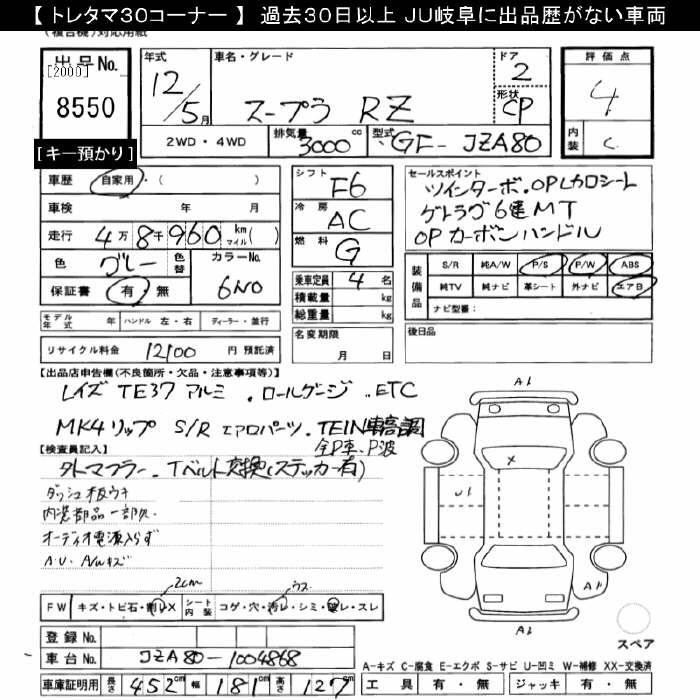 【 トレタマ30コーナー 】 過去30日以上 JU岐阜に出品歴がない車両
(複合機)対応用紙
出品No.
[2000]
8550
[キー預かり]
年式 12/5月
車名・グレード スープラ RZ
ドア 2
形状 CP
評価点 4
内装 C
2WD・4WD 排気量 3000cc 型式 GF-JZA80
車歴 自家用・( )
車検 年 月
走行 4万8千960 km マイル( )
色 グレー 色替 カラーNo. 6N0
保証書 有 無
シフト F6
冷房 AC
燃料 G
乗車定員 4名
積載量 kg
総重量 kg
名変期限 月 日
セールスポイント
ツインターボ.OPレカロシート
ゲトラグ6速MT
OPカーボンハンドル
装備品 S/R 純A/W P/S P/W ABS
純TV 純ナビ 革シート 外ナビ エアB
ナビ型番:
後日品
モデル年式 年 ハンドル 左・右 ディーラー・並行
リサイクル料金 12100 円 預託済
【出品店申告欄(不良箇所・欠品・注意事項等)】
レイズ TE37 アルミ . ロールゲージ . ETC
MK4 リップ S/R エアロパーツ . TEIN車高調
【検査員記入】
全P車、P波
タトマフラー . Tベルト交換(ステッカー有)
ダッシュ板ウキ
内装部品一部欠
オーディオ電源入らず
A.U. A/Wキズ
2cm
ウス
FW キズ・トビ石・割レX シート内装 コゲ・穴・汚レ・シミ・破レ・スレ
登録No.
車台No. JZA80-1004868
車庫証明用 長さ 452cm 幅 181cm 高さ 127cm
A1
X
U1
A1
A1
スペア
A-キズ C-腐食 E-エクボ S-サビ U-凹ミ W-補修 XX-交換済
工具 有・無 ジャッキ 有・無